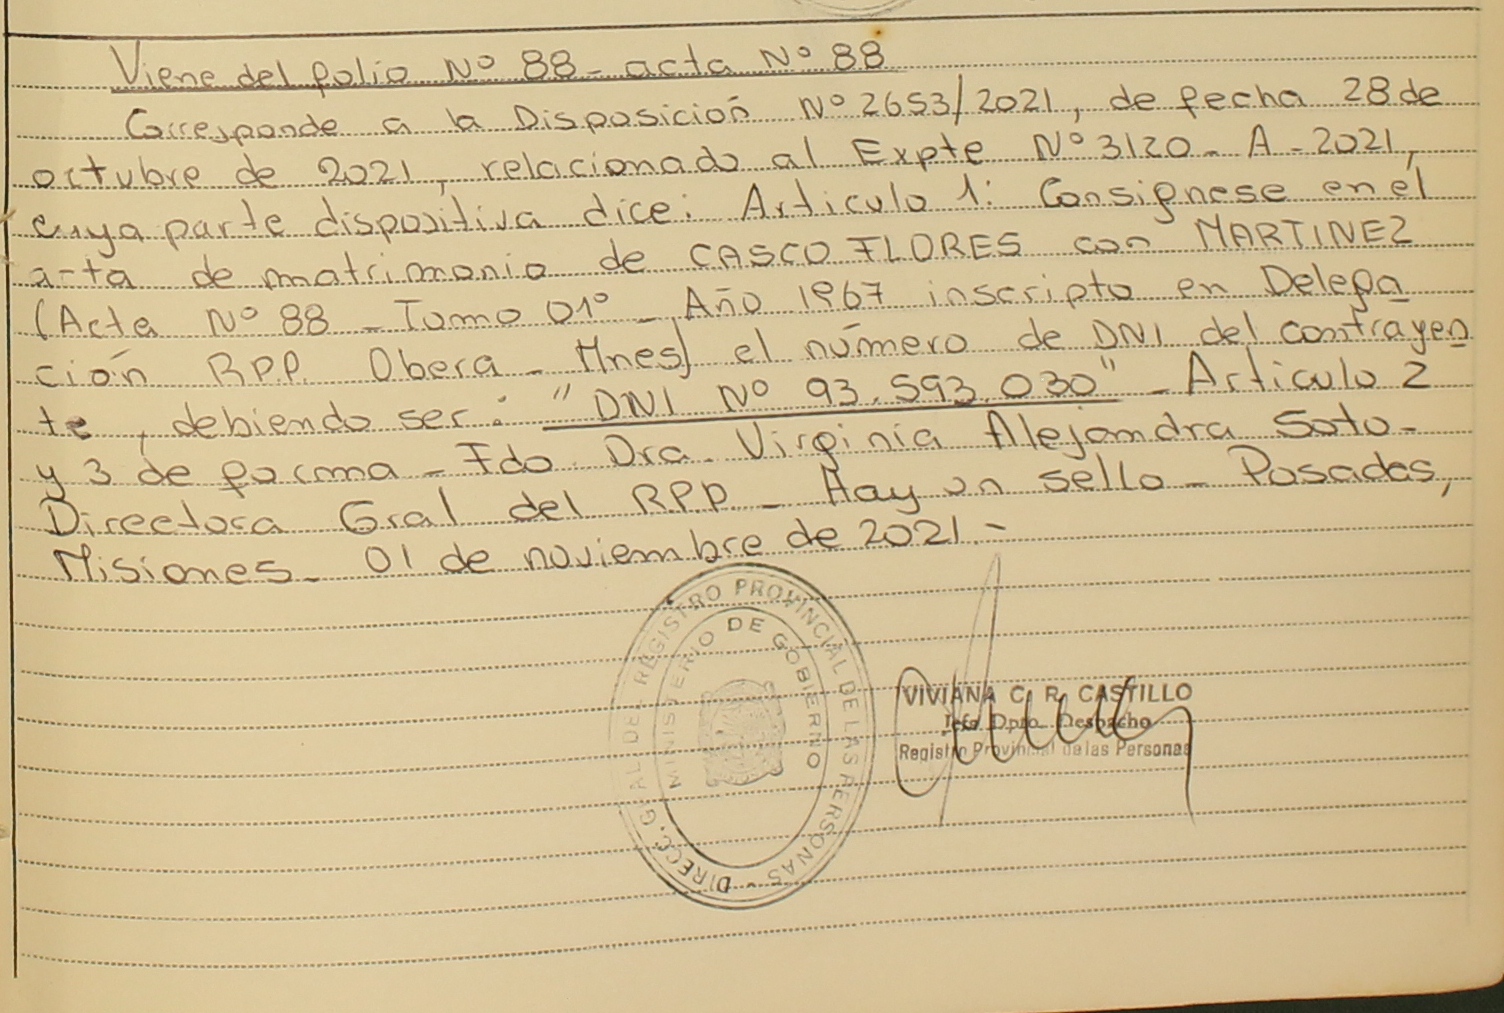 Viene del folio Nº 88 - acta Nº 88
Corresponde a la Disposición Nº 2653/2021, de fecha 28 de
octubre de 2021, relacionado al Expte Nº 3120 - A - 2021,
cuya parte dispositiva dice: Articulo 1: Consignese en el
acta de matrimonio de CASCO FLORES con MARTINEZ
(Acta Nº 88 - Tomo 01º - Año 1967 inscripto en Delega
ción RPP. Obera - Mnes) el número de DNI del contrayen
te, debiendo ser: "DNI Nº 93.593.030" - Articulo 2
y 3 de forma - Fdo. Dra. Virginia Alejandra Soto -
Directora Gral del RPP - Hay un sello - Posadas,
Misiones - 01 de noviembre de 2021.-
DIRECC. GRAL. DEL REGISTRO PROVINCIAL DE LAS PERSONAS -
MINISTERIO DE GOBIERNO
VIVIANA C. R. CASTILLO
Jefe Dpto. Despacho
Registro Provincial de las Personas